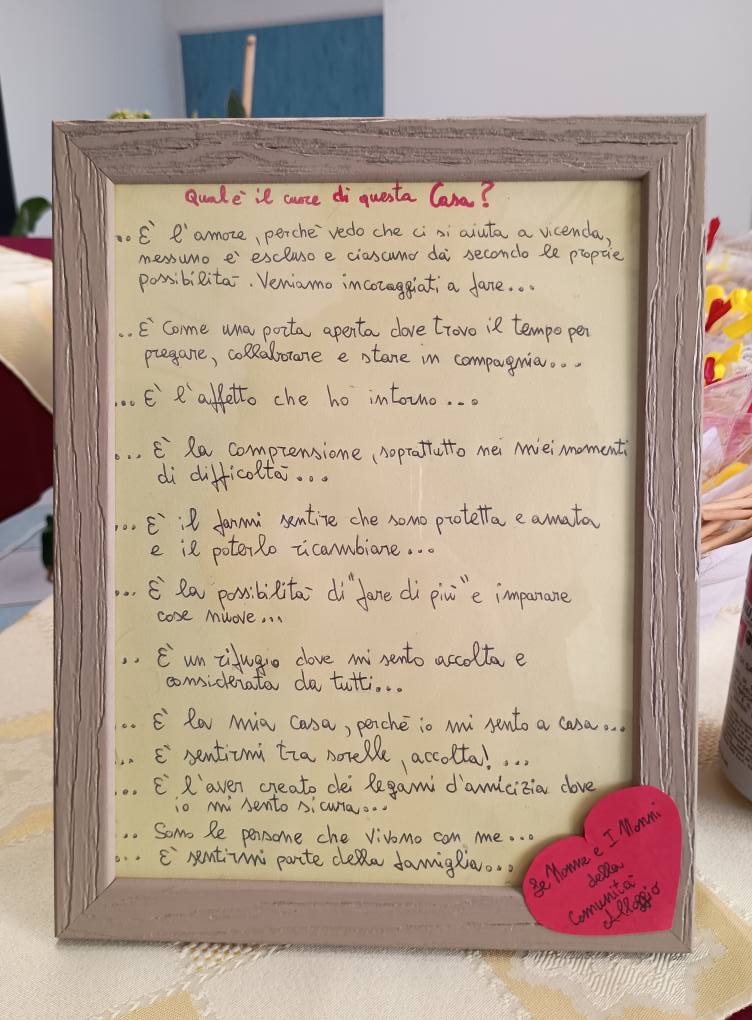 Qual è il cuore di questa Casa?
.. È l'amore, perchè vedo che ci si aiuta a vicenda,
nessuno è escluso e ciascuno dà secondo le proprie
possibilità. Veniamo incoraggiati a fare...
.. È come una porta aperta dove trovo il tempo per
pregare, collaborare e stare in compagnia...
... È l'affetto che ho intorno...
... È la comprensione, soprattutto nei miei momenti
di difficoltà...
... È il farmi sentire che sono protetta e amata
e il poterlo ricambiare...
... È la possibilità di "fare di più" e imparare
cose nuove...
.. È un rifugio dove mi sento accolta e
considerata da tutti...
.. È la mia casa, perchè io mi sento a casa...
... È sentirmi tra sorelle, accolta! ...
... È l'aver creato dei legami d'amicizia dove
io mi sento sicura...
.. Sono le persone che vivono con me...
... È sentirmi parte della famiglia...
Le Nonne e I Nonni
della
Comunità
Alloggio